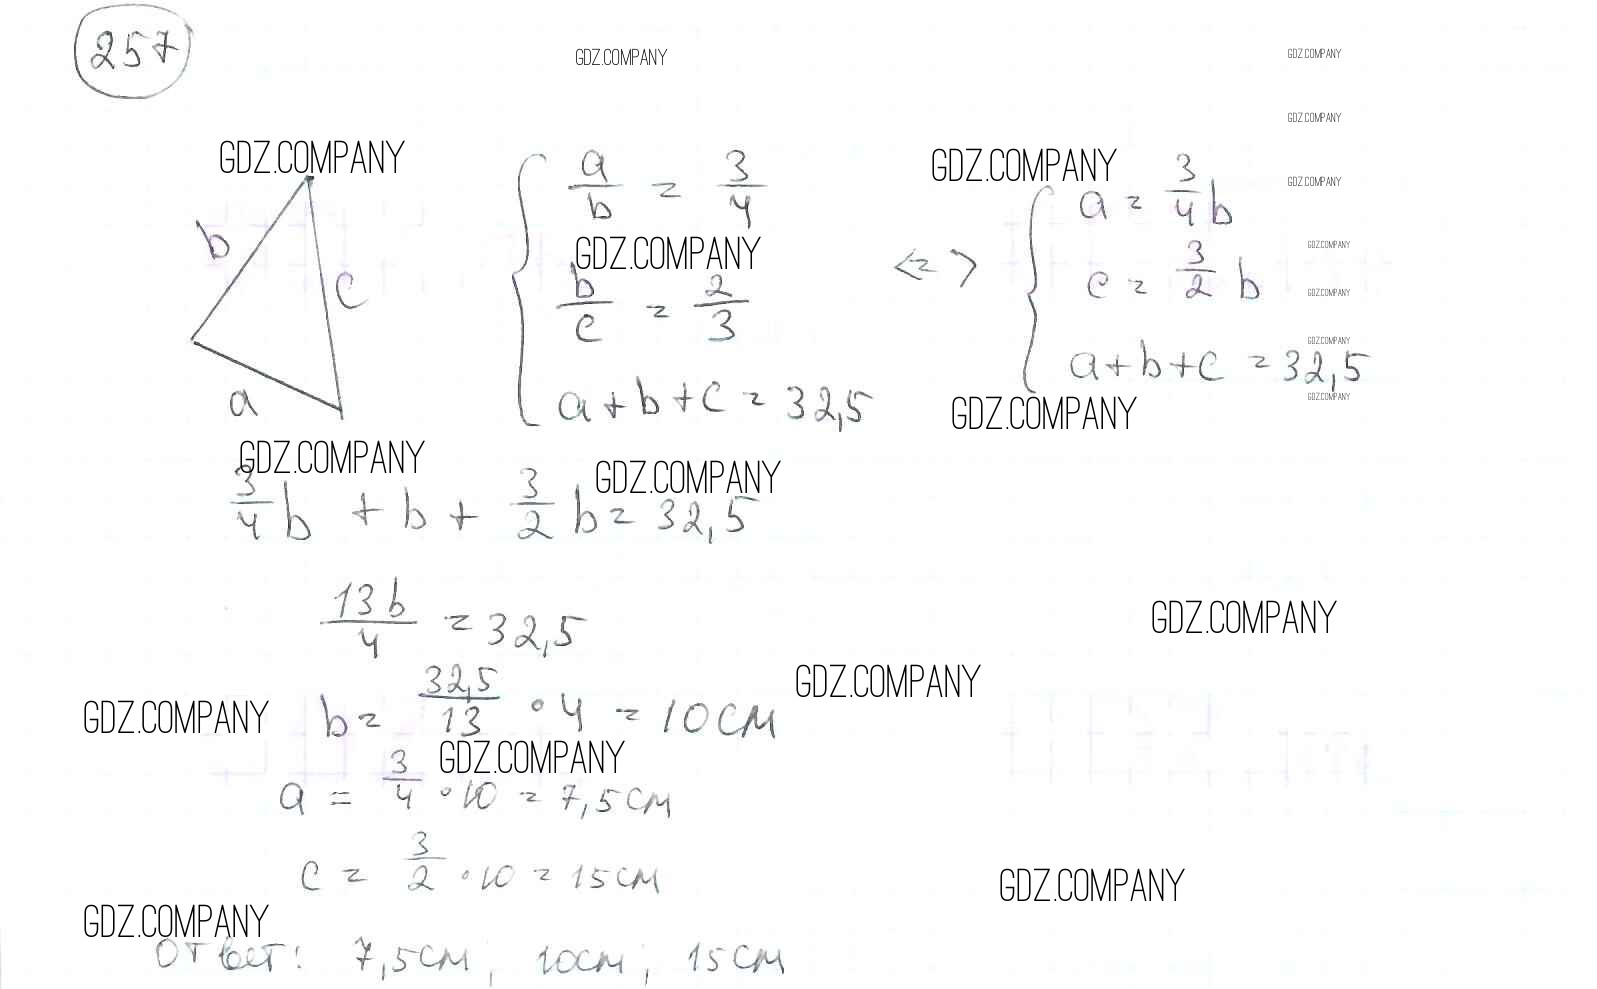 257
GDZ.COMPANY
GDZ.COMPANY
GDZ.COMPANY
GDZ.COMPANY
GDZ.COMPANY
GDZ.COMPANY
GDZ.COMPANY
GDZ.COMPANY
GDZ.COMPANY
GDZ.COMPANY
GDZ.COMPANY
b
c
a
a/b = 3/4
b/c = 2/3
a+b+c = 32,5
<=>
a = 3/4 b
c = 3/2 b
a+b+c = 32,5
GDZ.COMPANY
GDZ.COMPANY
GDZ.COMPANY
3/4 b + b + 3/2 b = 32,5
13b/4 = 32,5
GDZ.COMPANY
GDZ.COMPANY
GDZ.COMPANY
b = 32,5/13 · 4 = 10 см
GDZ.COMPANY
a = 3/4 · 10 = 7,5 см
c = 3/2 · 10 = 15 см
GDZ.COMPANY
GDZ.COMPANY
Ответ: 7,5 см; 10 см; 15 см